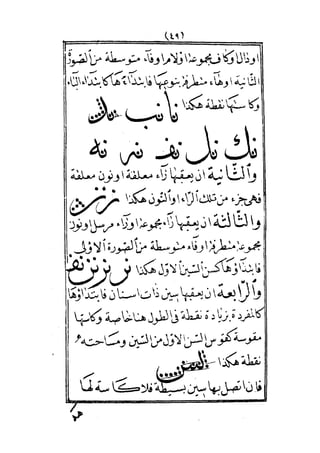 (٤٩)
اوذال اوكاف مجموعة اولام اوفاء متوسطة من الصورة
الثانية اوهاء منطرفة بنوعيها فابتداؤها كابتداء الباء
وكاسها نقطة هكذا نا نب نبك
نك نل نف نم نه
والثانية ان يعقبها زاء معلفة اونون معلفة
فهى جزء من تلك الراء والنون هكذا نر نن
والثالثة ان يعقبها راء مجموعة اوراء مرسلة اونون
مجموعة متطرفة اوفاء متوسطة من الصورة الاولى
فابتداؤها كسن السين الاول هكذا نر نر نن نف
والرابعة ان يعقبها سين ذات اسنان فابتداؤها
كالمفردة بزيادة نقطة فى الطول هنا خاصة وكاسها
مقوسة كقوس السن الاول من السين ومساحته
نقطة هكذا
فان اتصل بها سين بسيطة فلا كاسة لها